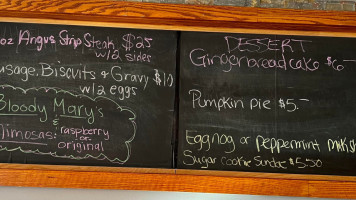 oz Angus Strip Steak $25
w/2 sides
usage, Biscuits & Gravy $10
w/2 eggs
Bloody Mary's
&
Mimosas: raspberry
or
original
DESSERT
Gingerbread cake $6-
Pumpkin pie $5.-
Eggnog or Peppermint
Sugar cookie Sundae $5.50